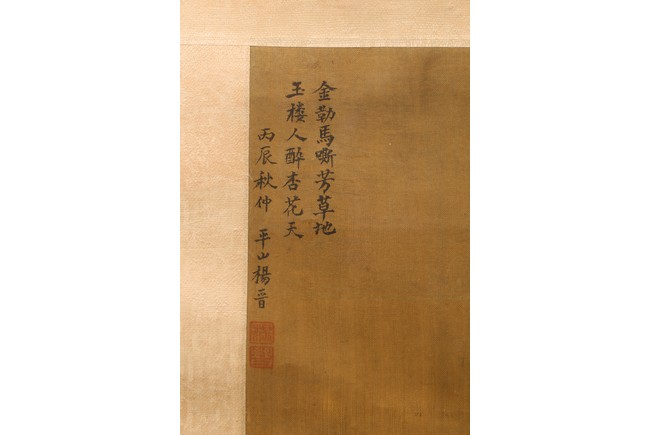 金勒馬嘶芳草地
玉楼人醉杏花天
丙辰秋仲 平山楊晉